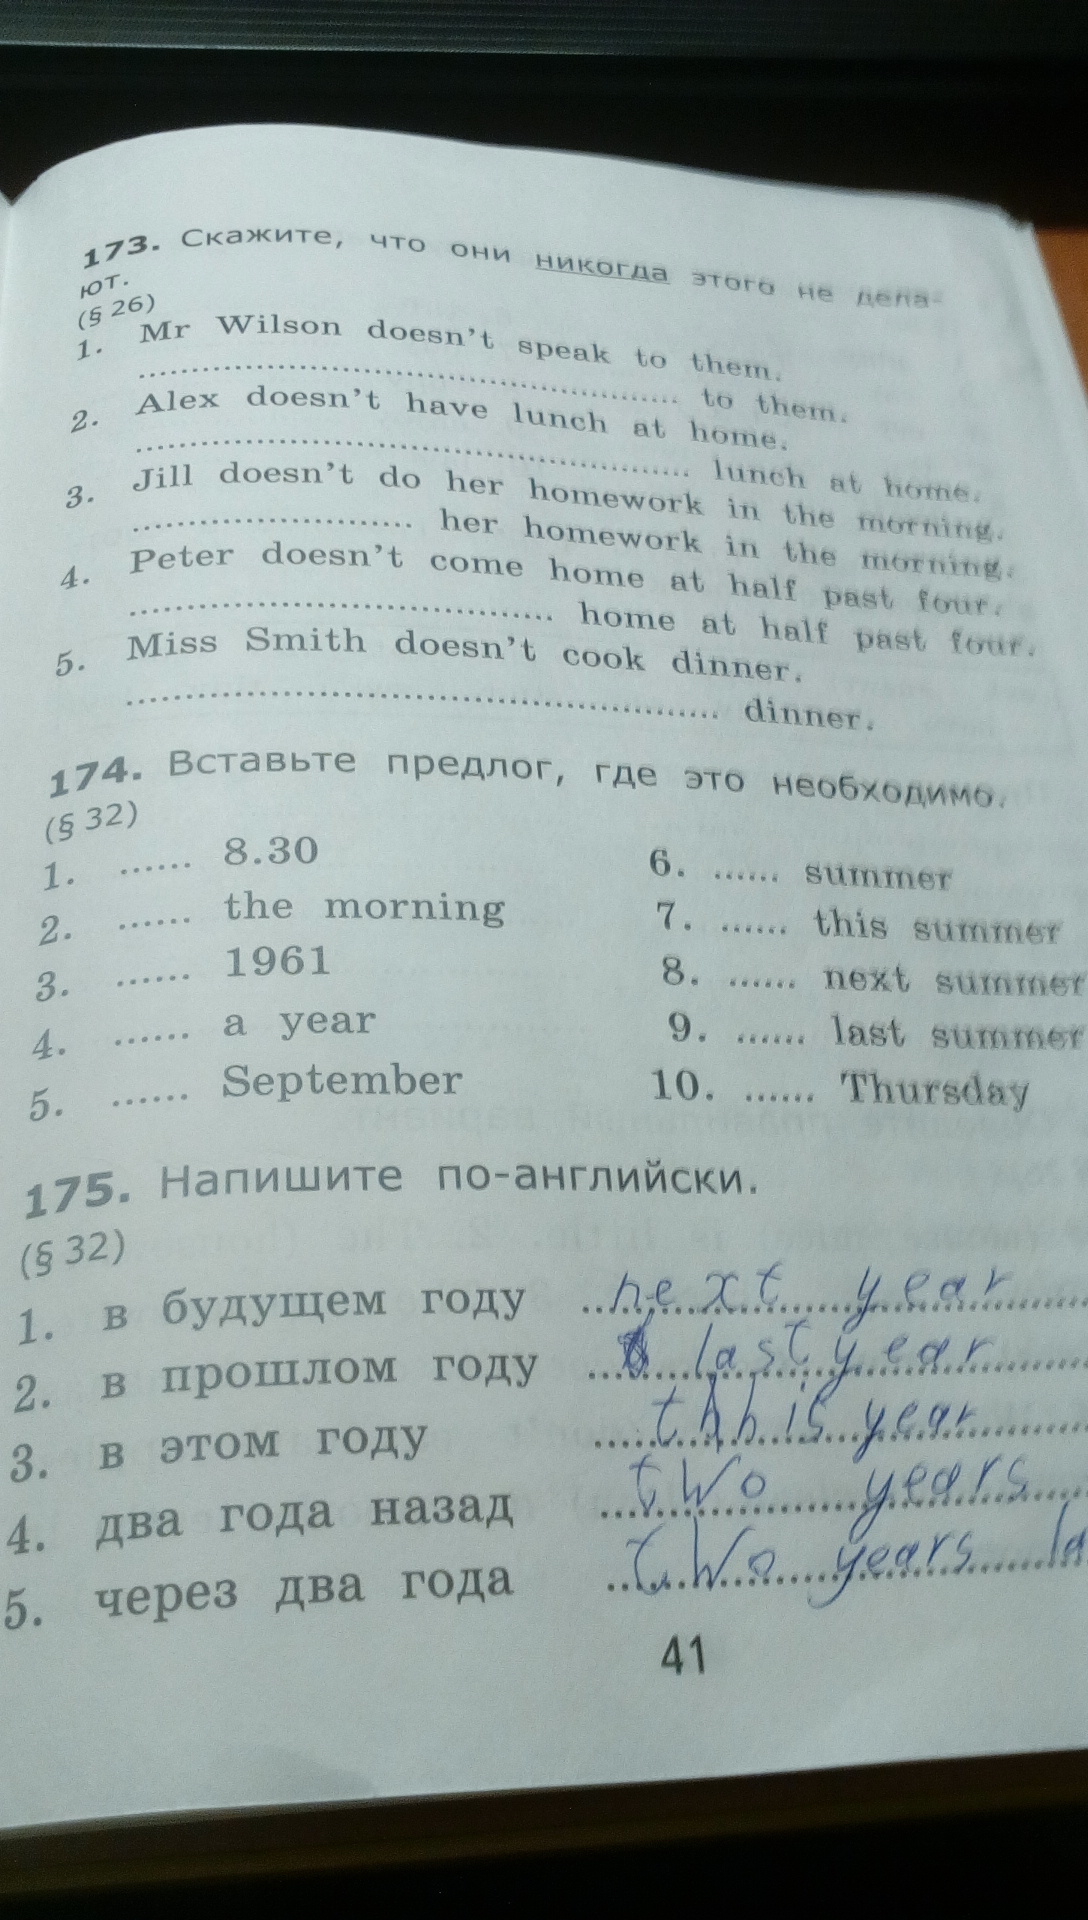 173. Скажите, что они никогда этого не дела-
ют.
(§ 26)
1. Mr Wilson doesn't speak to them.
........ to them.
2. Alex doesn't have lunch at home.
........ lunch at home.
3. Jill doesn't do her homework in the morning.
........ her homework in the morning.
4. Peter doesn't come home at half past four.
........ home at half past four.
5. Miss Smith doesn't cook dinner.
........ dinner.
174. Вставьте предлог, где это необходимо.
(§ 32)
1. ...... 8.30
2. ...... the morning
3. ...... 1961
4. ...... a year
5. ...... September
6. ...... summer
7. ...... this summer
8. ...... next summer
9. ...... last summer
10. ...... Thursday
175. Напишите по-английски.
(§ 32)
1. в будущем году next year
2. в прошлом году last year
3. в этом году this year
4. два года назад two years
5. через два года two years la
41